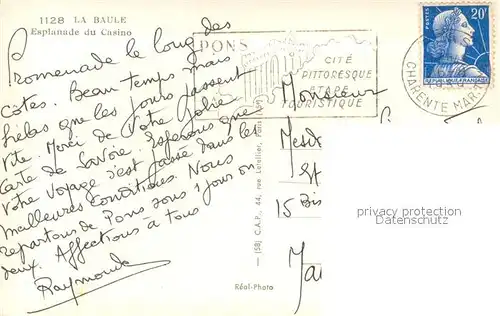 1128 LA BAULE
Esplanade du Casino
Promenade le long des
côtes. Beau temps mais
hélas que les jours passent
vite. Merci de votre jolie
Carte de Savoie. Espérons que
votre voyage s'est passé dans les
meilleures conditions. Nous
repartons de Pons sous 1 jour ou
deux. Affections à tous
Raymonde
PONS
CITÉ
PITTORESQUE
ETAPE
TOURISTIQUE
CHARENTE MARIT
POSTES
20F
REPUBLIQUE FRANÇAISE
(58) C.A.P., 44, rue Letellier, Paris (XVe)
Réal-Photo
Monsieur
15 Bis
privacy protection
Datenschutz